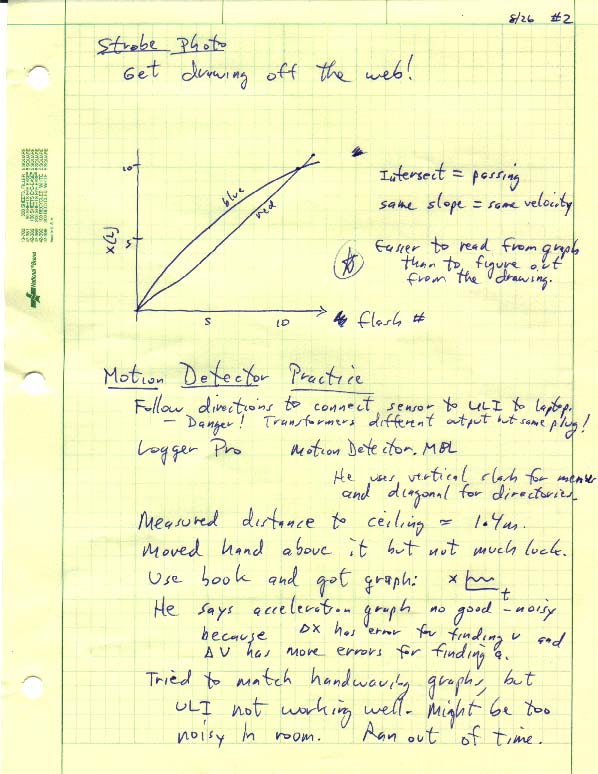 8/26 #2
Strobe Photo
Get drawing off the web!
10
5
x(L)
blue
red
5
10
flash #
Intersect = passing
same slope = same velocity
Easier to read from graph
than to figure out
from the drawing.
National Brand
Motion Detector Practice
Follow directions to connect sensor to ULI to laptop.
– Danger! Transformers different output but same plug!
Logger Pro Motion Detector.MBL
He uses vertical slash for menus
and diagonal for directories.
Measured distance to ceiling = 1.4m.
Moved hand above it but not much luck.
Use book and got graph: x t
He says acceleration graph no good – noisy
because ΔX has error for finding v and
ΔV has more errors for finding a.
Tried to match handwaving graphs, but
ULI not working well. Might be too
noisy in room. Ran out of time.